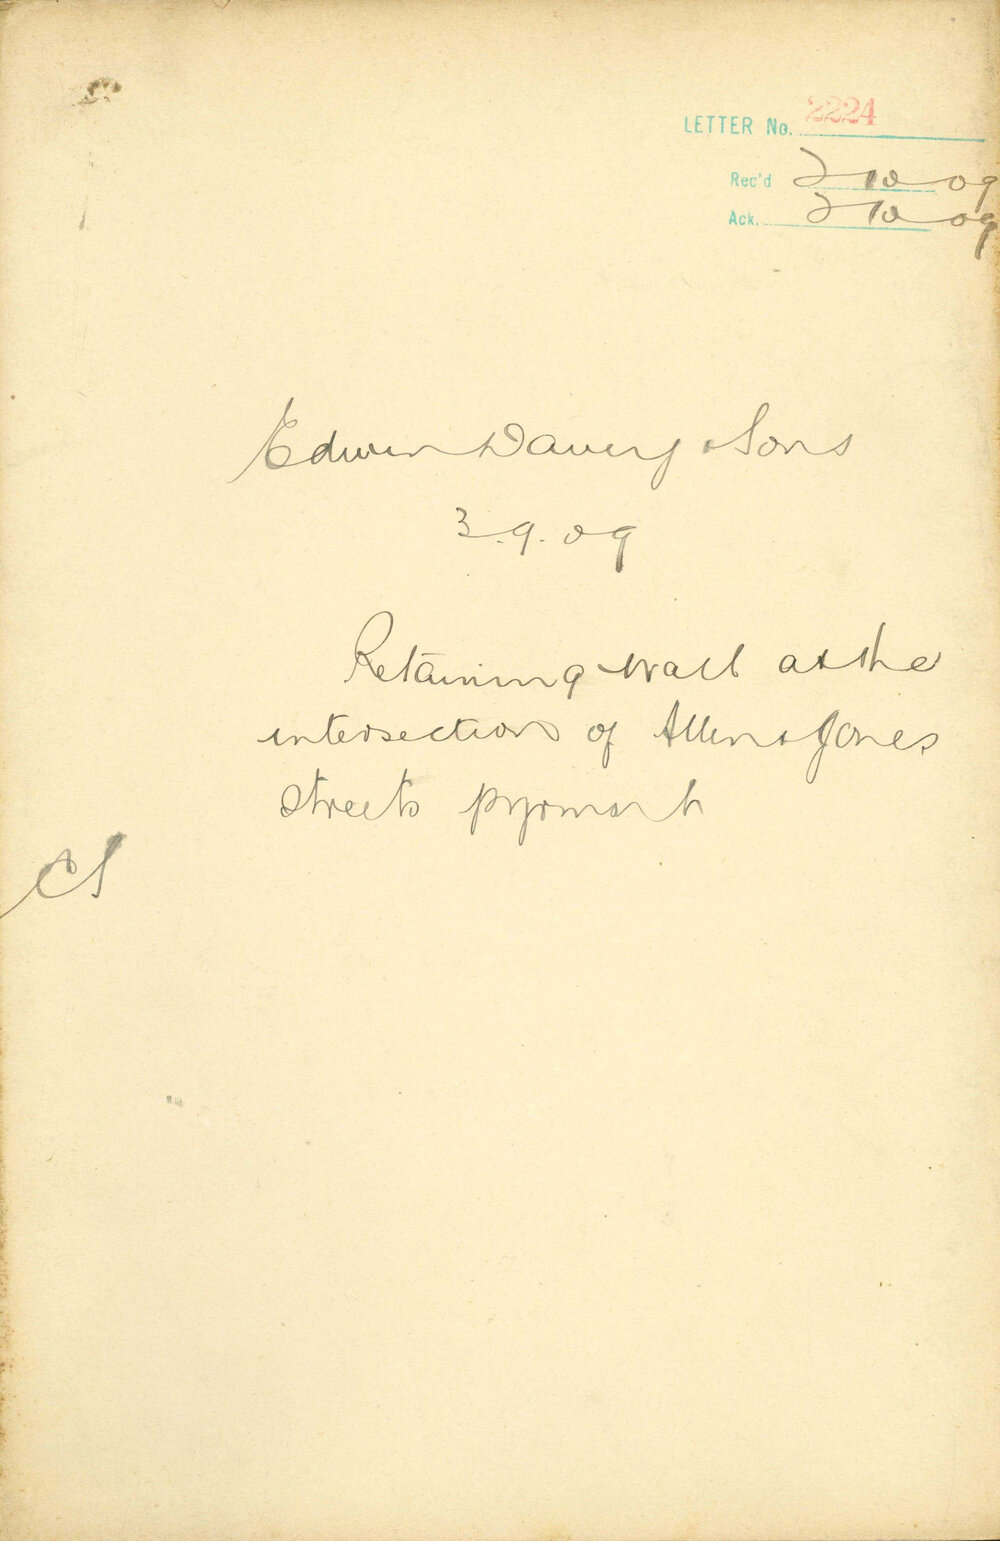 LETTER No. 2224
Rec'd 2 10 09
Ack. 2 10 09
Edwin Davey & Sons
3.9.09
Retaining wall at the
intersection of Allen & Jones
streets pyrmont
CS